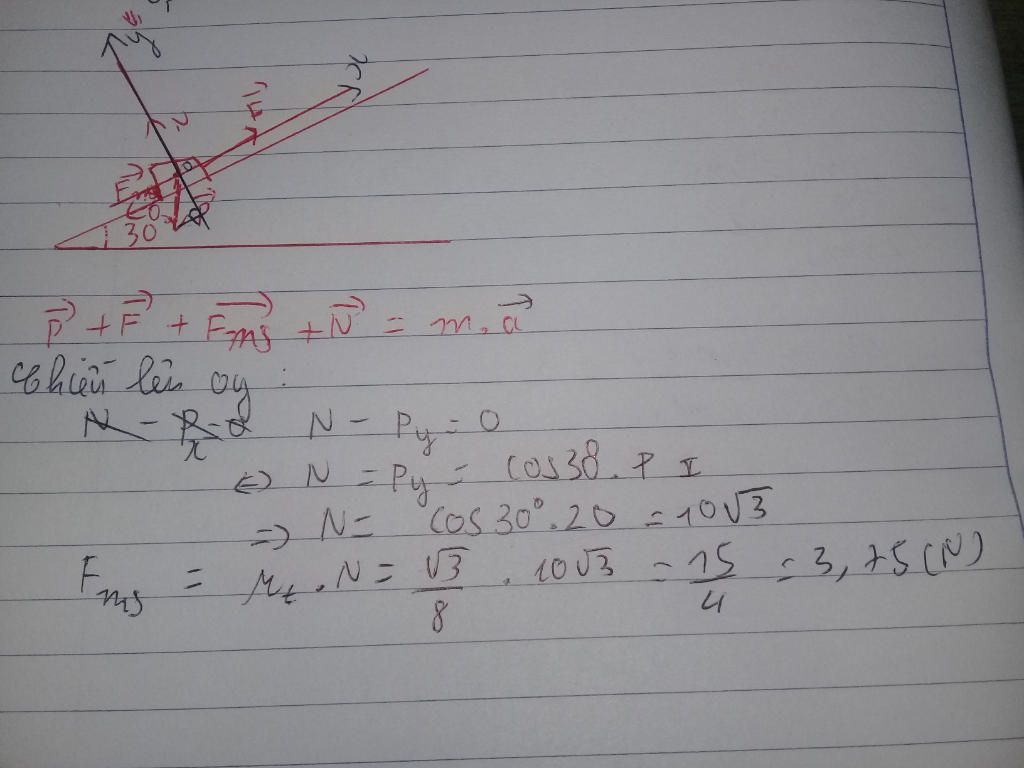 y
x
F
N
Fms
30
P + F + Fms + N = m.a
Chiếu lên oy :
N - Px = 0 N - Py = 0
<=> N = Py = cos30.P
=> N = cos30°.20 = 10√3
Fms = μt.N = √3/8 . 10√3 = 15/4 = 3,75 (N)